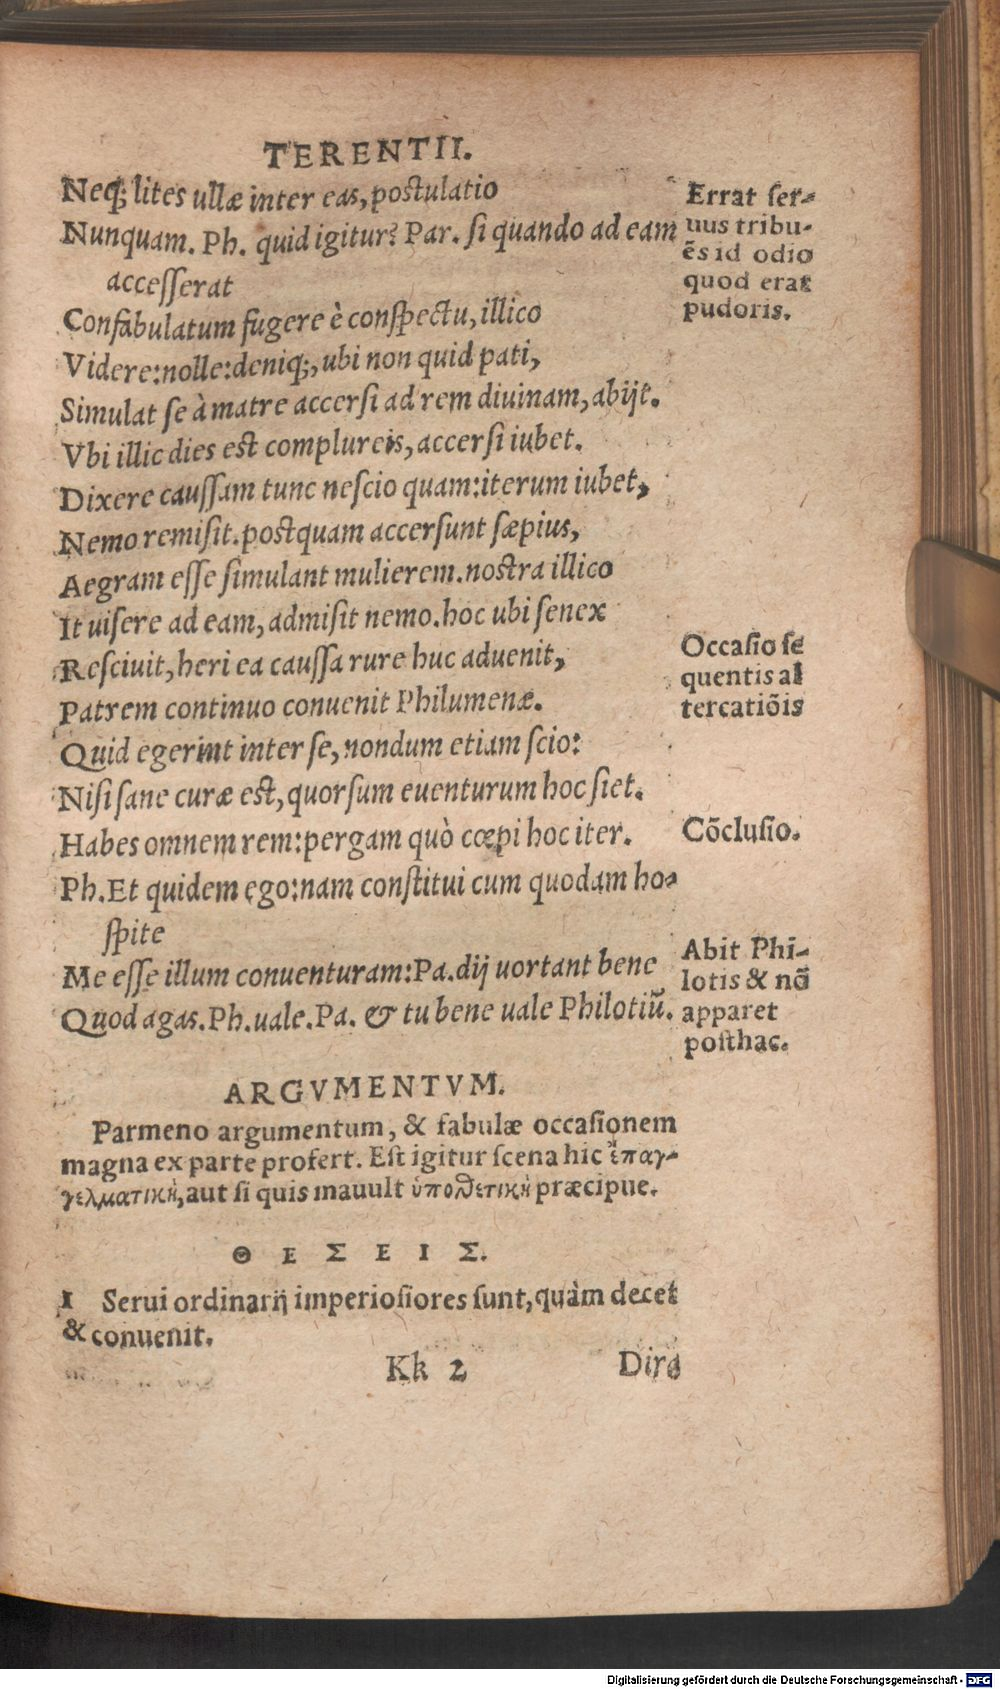 TERENTII.
Neq; lites ullæ inter eas, postulatio
Nunquam. Ph. quid igitur? Par. si quando ad eam
accesserat
Confabulatum fugere è conspectu, illico
Videre: nolle: deniq;, ubi non quid pati,
Simulat se à matre accersi ad rem diuinam, abijt.
Vbi illic dies est complureis, accersi iubet.
Dixere caussam tunc nescio quam: iterum iubet,
Nemo remisit. postquam accersunt sæpius,
Aegram esse simulant mulierem. nostra illico
It uisere ad eam, admisit nemo. hoc ubi senex
Resciuit, heri ea caussa rure huc aduenit,
Patrem continuo conuenit Philumenæ.
Quid egerint inter se, nondum etiam scio:
Nisi sane curæ est, quorsum euenturum hoc siet.
Habes omnem rem: pergam quò cœpi hoc iter.
Ph. Et quidem ego: nam constitui cum quodam ho-
spite
Me esse illum conuenturam: Pa. dij uortant bene
Quod agas. Ph. uale. Pa. & tu bene uale Philotiũ.
Errat ser-
uus tribu-
ẽs id odio
quod erat
pudoris.
Occasio se
quentis al
tercatiõis
Cõclusio.
Abit Phi-
lotis & nõ
apparet
posthac.
ARGVMENTVM.
Parmeno argumentum, & fabulæ occasionem
magna ex parte profert. Est igitur scena hic ἐπαγ-
γελματικὴ, aut si quis mauult ὑποθετικὴ præcipue.
ΘΕΣΕΙΣ.
1 Serui ordinarij imperiosiores sunt, quàm decet
& conuenit.
Kk 2 Dira
Digitalisierung gefördert durch die Deutsche Forschungsgemeinschaft - DFG